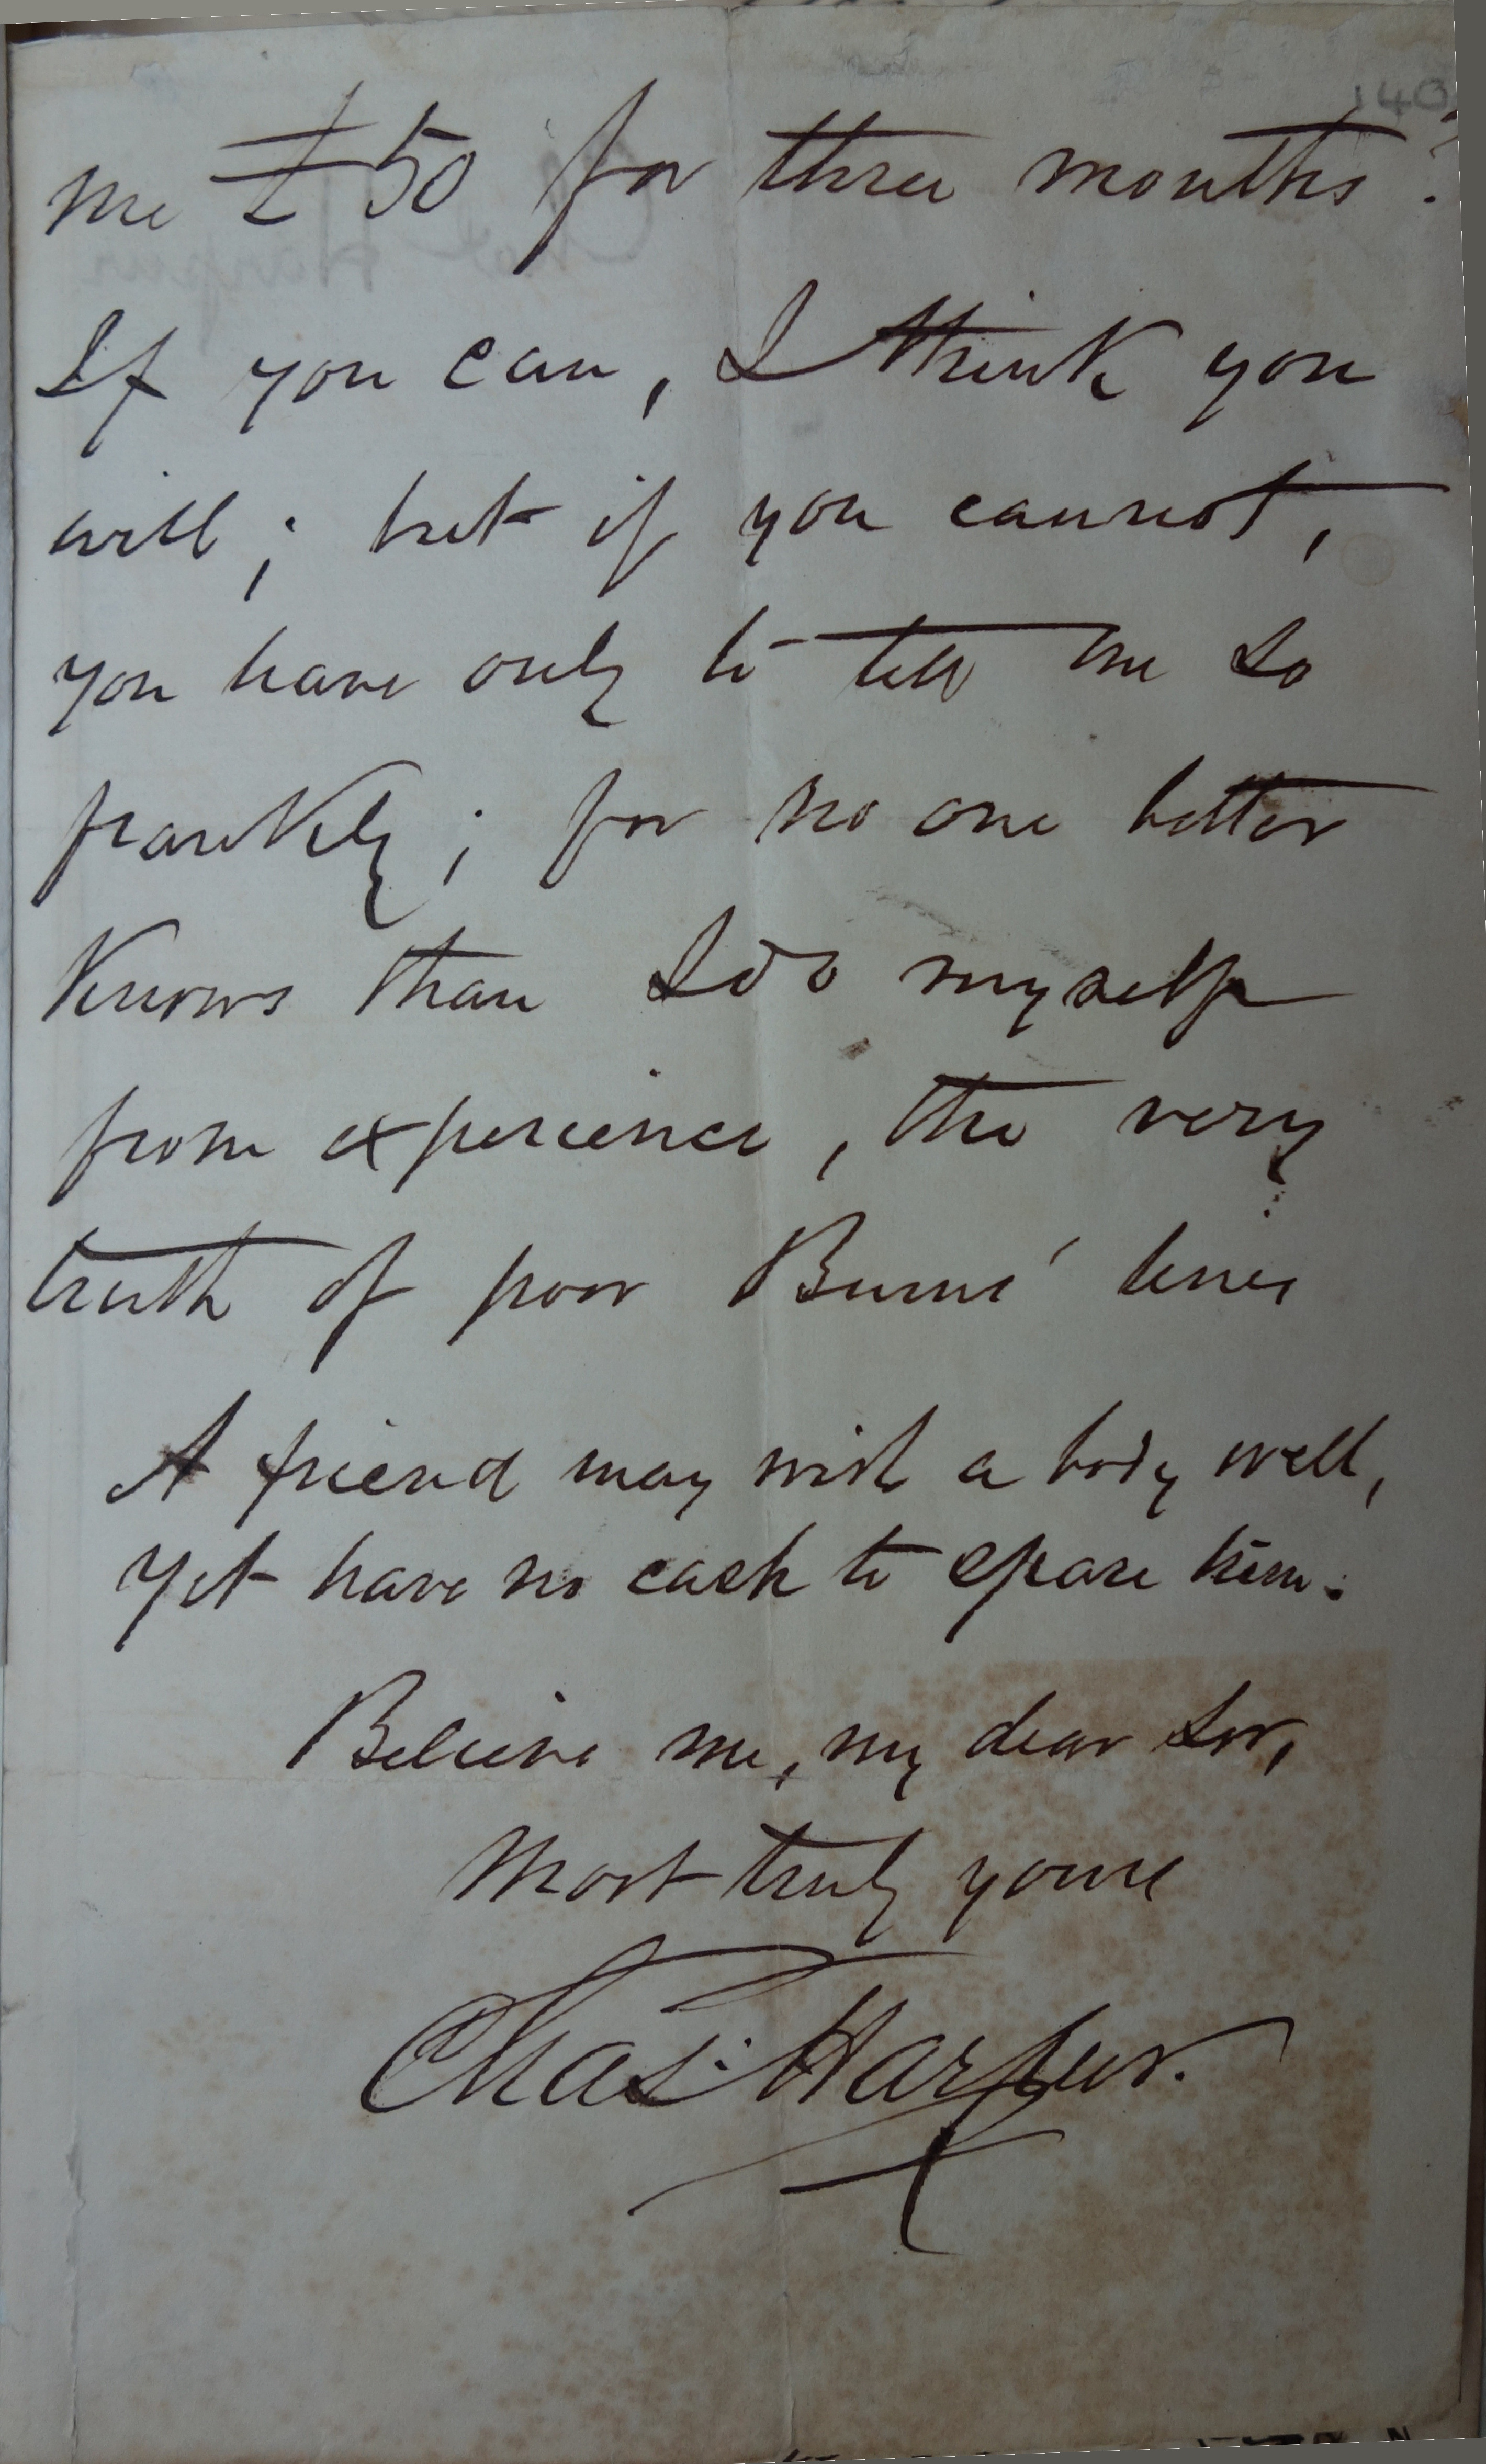 140
me £50 for three months?
If you can, I think you
will; but if you cannot,
you have only to tell me so
frankly; for no one better
knows than I do myself
from experience, the very
truth of poor Burns' lines
A friend may wish a body well,
Yet have no cash to spare him.
Believe me, my dear Sir,
Most truly yours
Chas. Harpur.